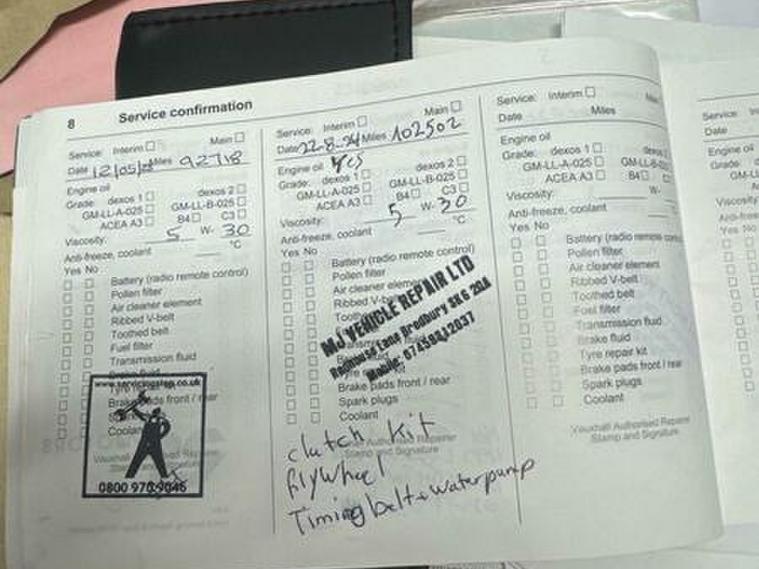 8 Service confirmation
Service: Interim Main
Date 12/05/ Miles 92718
Engine oil
Grade: dexos 1 dexos 2
GM-LL-A-025 GM-LL-B-025
ACEA A3 B4 C3
Viscosity: 5 W- 30
Anti-freeze, coolant °C
Yes No
Battery (radio remote control)
Pollen filter
Air cleaner element
Ribbed V-belt
Toothed belt
Fuel filter
Transmission fluid
Brake fluid
Tyre
Brake pads front / rear
Coolant
Vauxhall Repairer
Stamp and
www.servicingstop.co.uk
0800 970 9046
Service: Interim Main
Date 22-8-24 Miles 102502
Engine oil Yes
Grade: dexos 1 dexos 2
GM-LL-A-025 GM-LL-B-025
ACEA A3 B4 C3
Viscosity: 5 W- 30
Anti-freeze, coolant °C
Yes No
Battery (radio remote control)
Pollen filter
Air cleaner element
Ribbed V-belt
Brake pads front / rear
Spark plugs
Coolant
MJ VEHICLE REPAIR LTD
Redhouse Lane Bredbury SK6 20A
Mobile: 07458442037
Authorised Repairer
Stamp and Signature
clutch Kit
flywheel
Timing belt + waterpump
Service: Interim Main
Date Miles
Engine oil
Grade: dexos 1 dexos 2
GM-LL-A-025 GM-LL-B-025
ACEA A3 B4
Viscosity: W-
Anti-freeze, coolant
Yes No
Battery (radio remote
Pollen filter
Air cleaner element
Ribbed V-belt
Toothed belt
Fuel filter
Transmission fluid
Brake fluid
Tyre repair kit
Brake pads front / rear
Spark plugs
Coolant
Vauxhall Authorised Repairer
Stamp and Signature
Service: Inter
Date
Engine oil
Grade:
GM-LL
ACEA
Viscosity:
Anti-freeze
Yes No